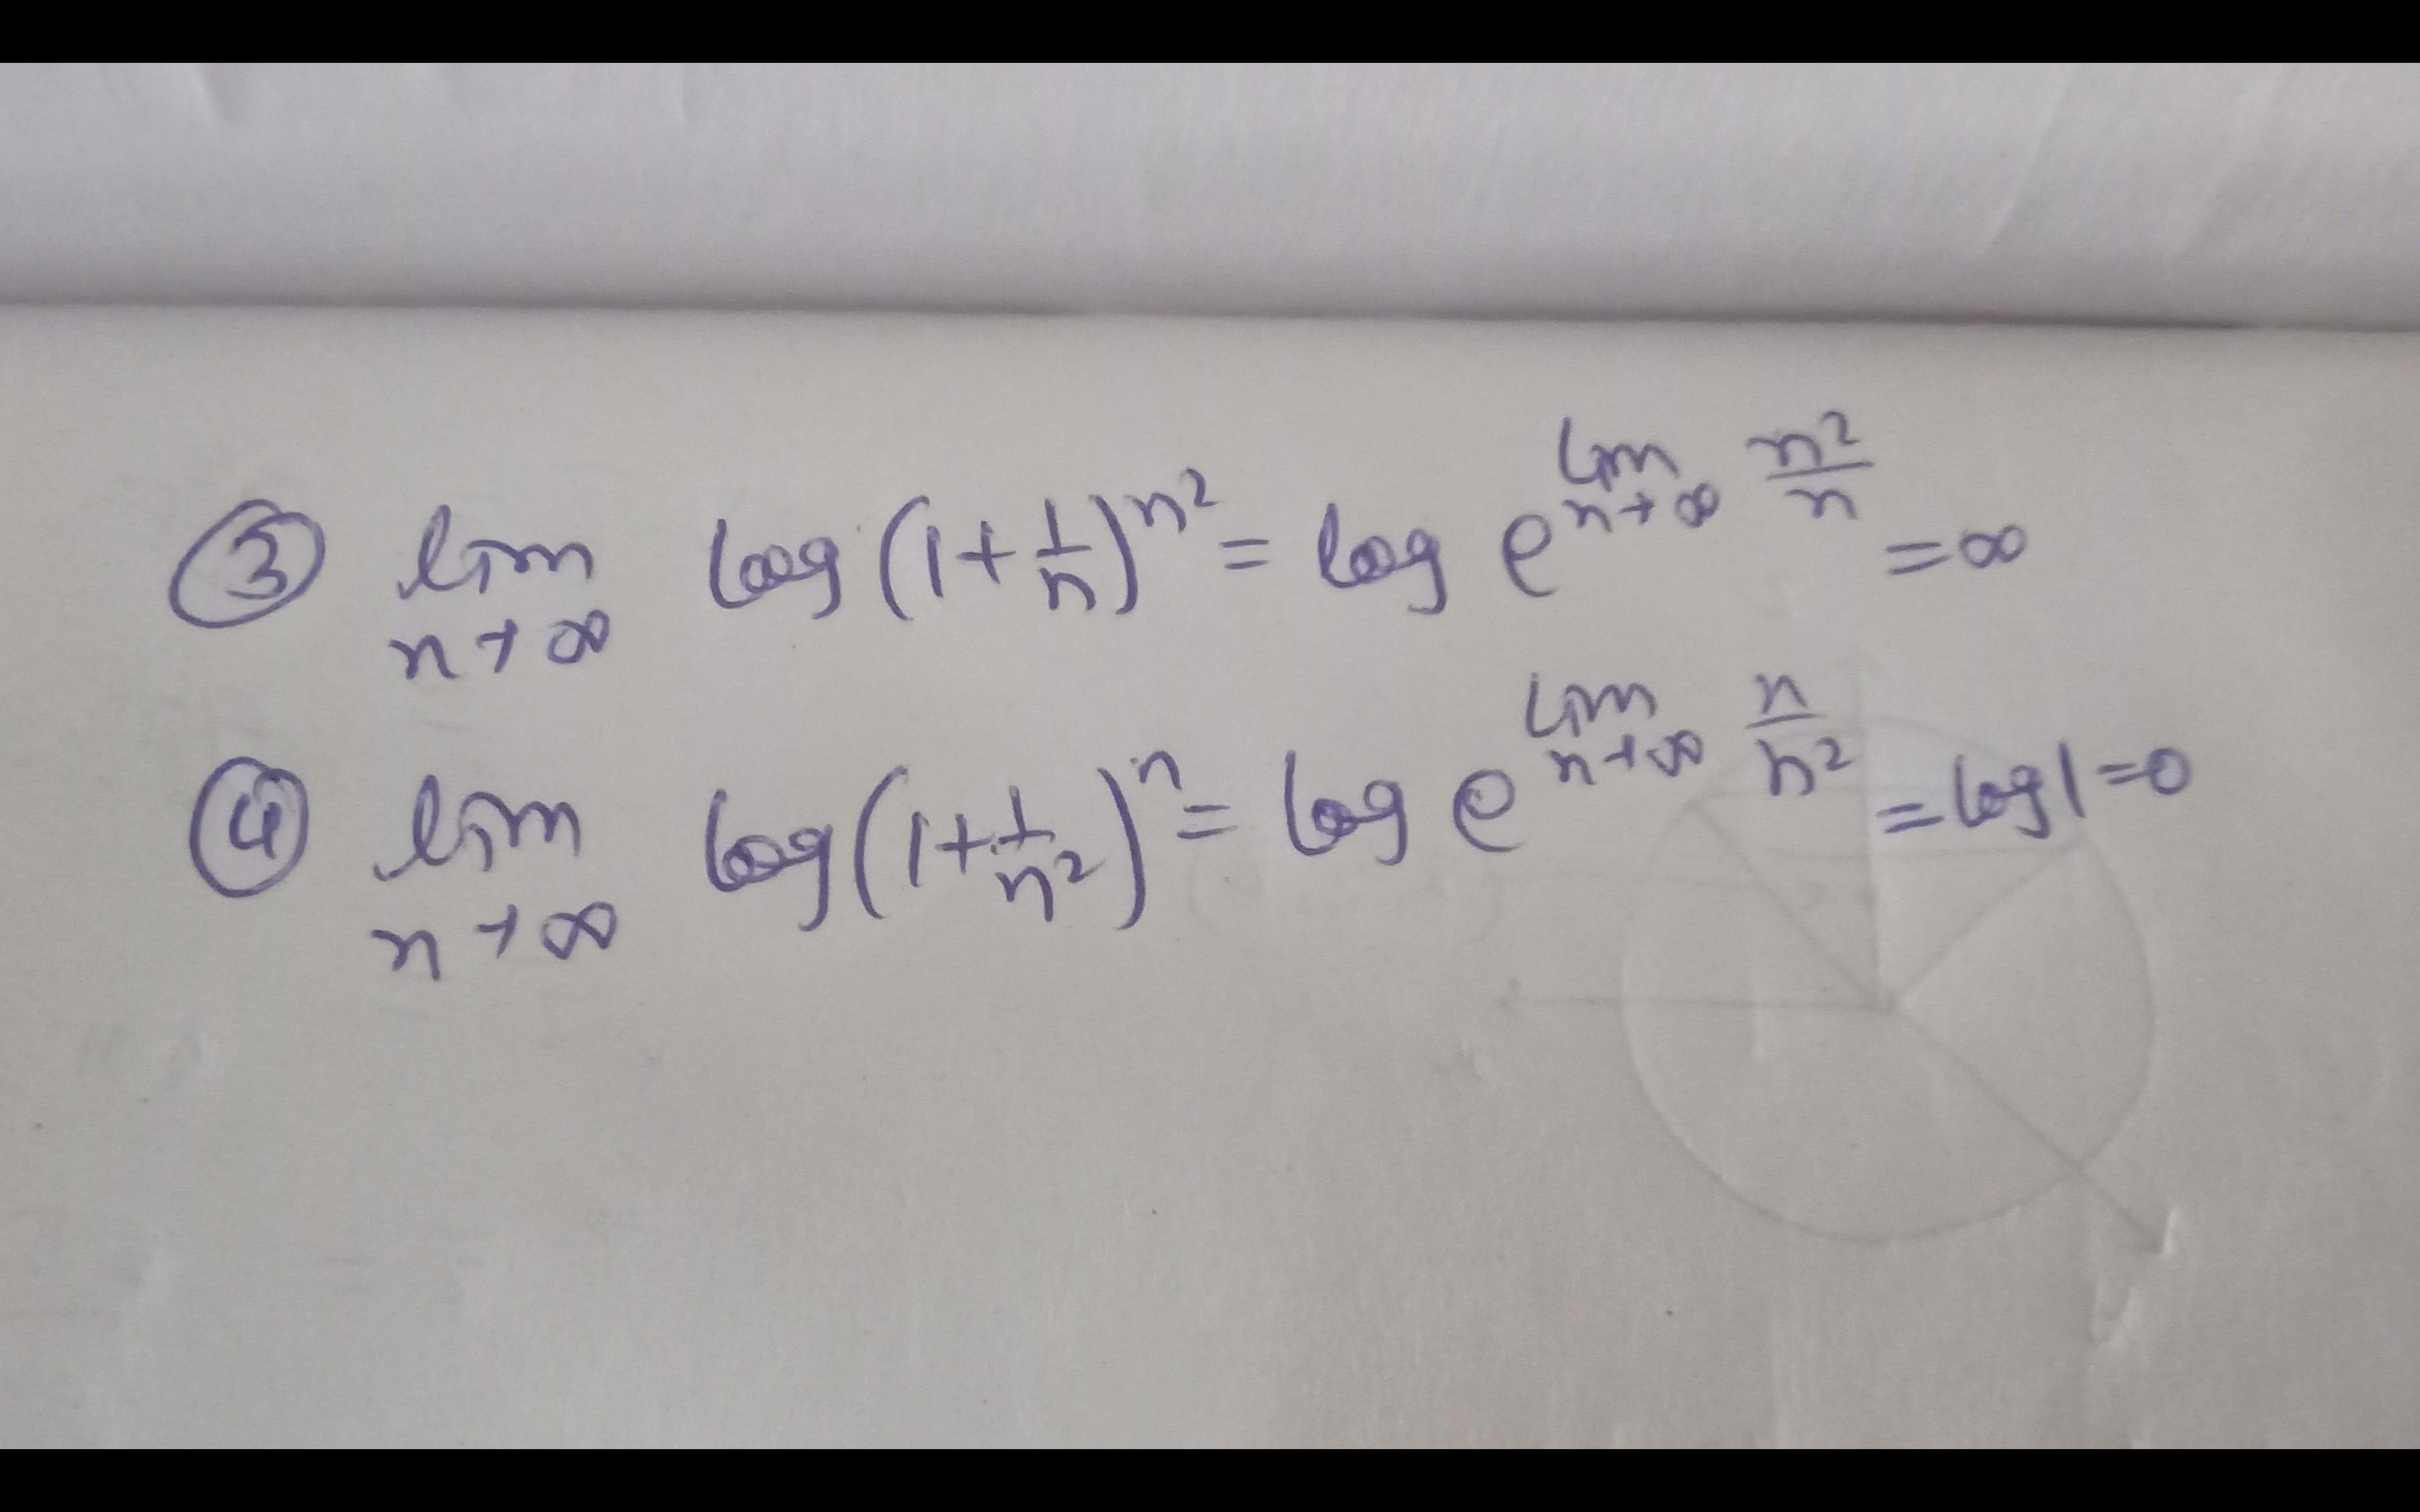 ③ lim n→∞ log (1 + 1/n)^n² = log e^(lim n→∞ n²/n) = ∞
④ lim n→∞ log (1 + 1/n²)^n = log e^(lim n→∞ n/n²) = log 1 = 0